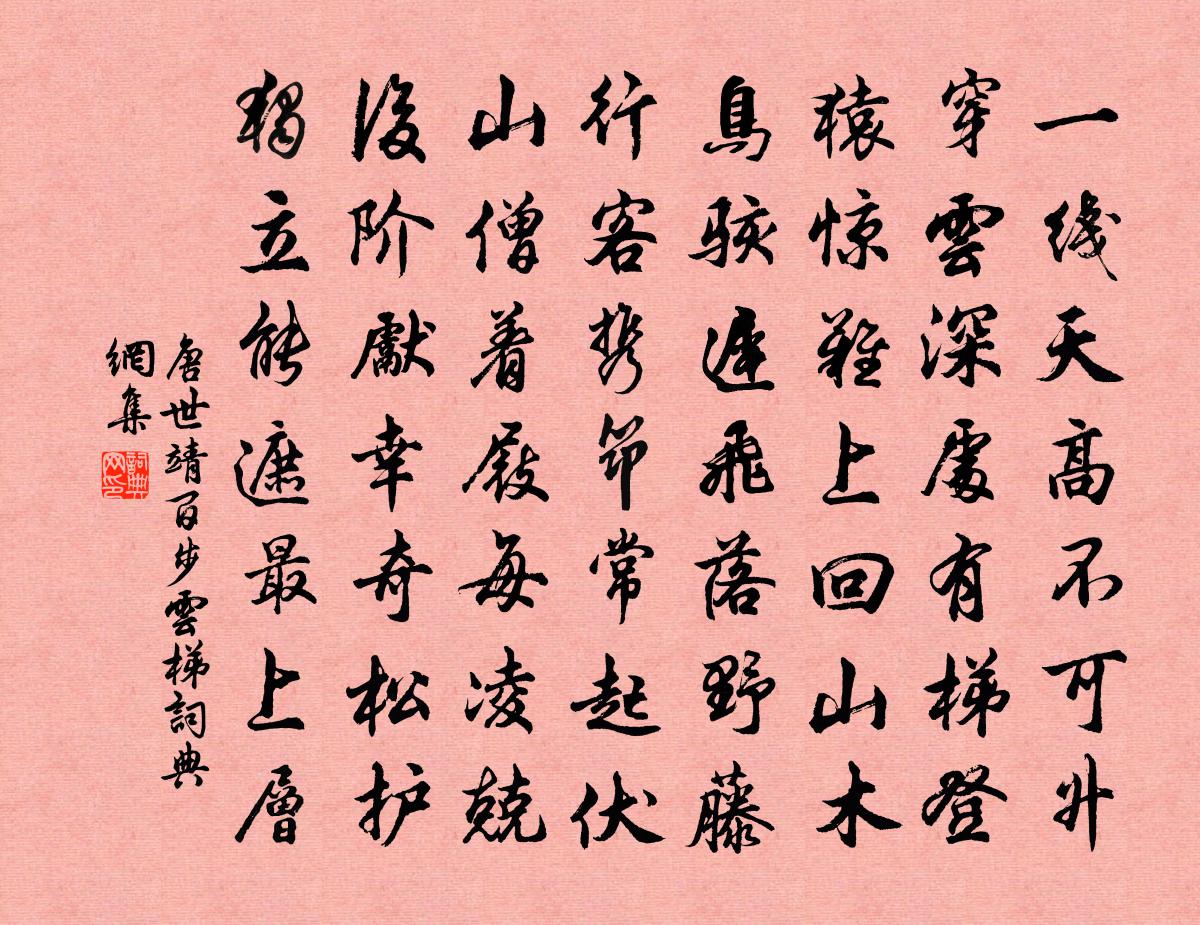 一线天高不可升
穿雲深處有梯登
猿惊难上回山木
鳥骇遲飛落野藤
行客携筇常起伏
山僧着屐每凌兢
後阶獻幸奇松护
獨立能遮最上層
唐世靖百步雲梯詞典
網集
詞典
网印